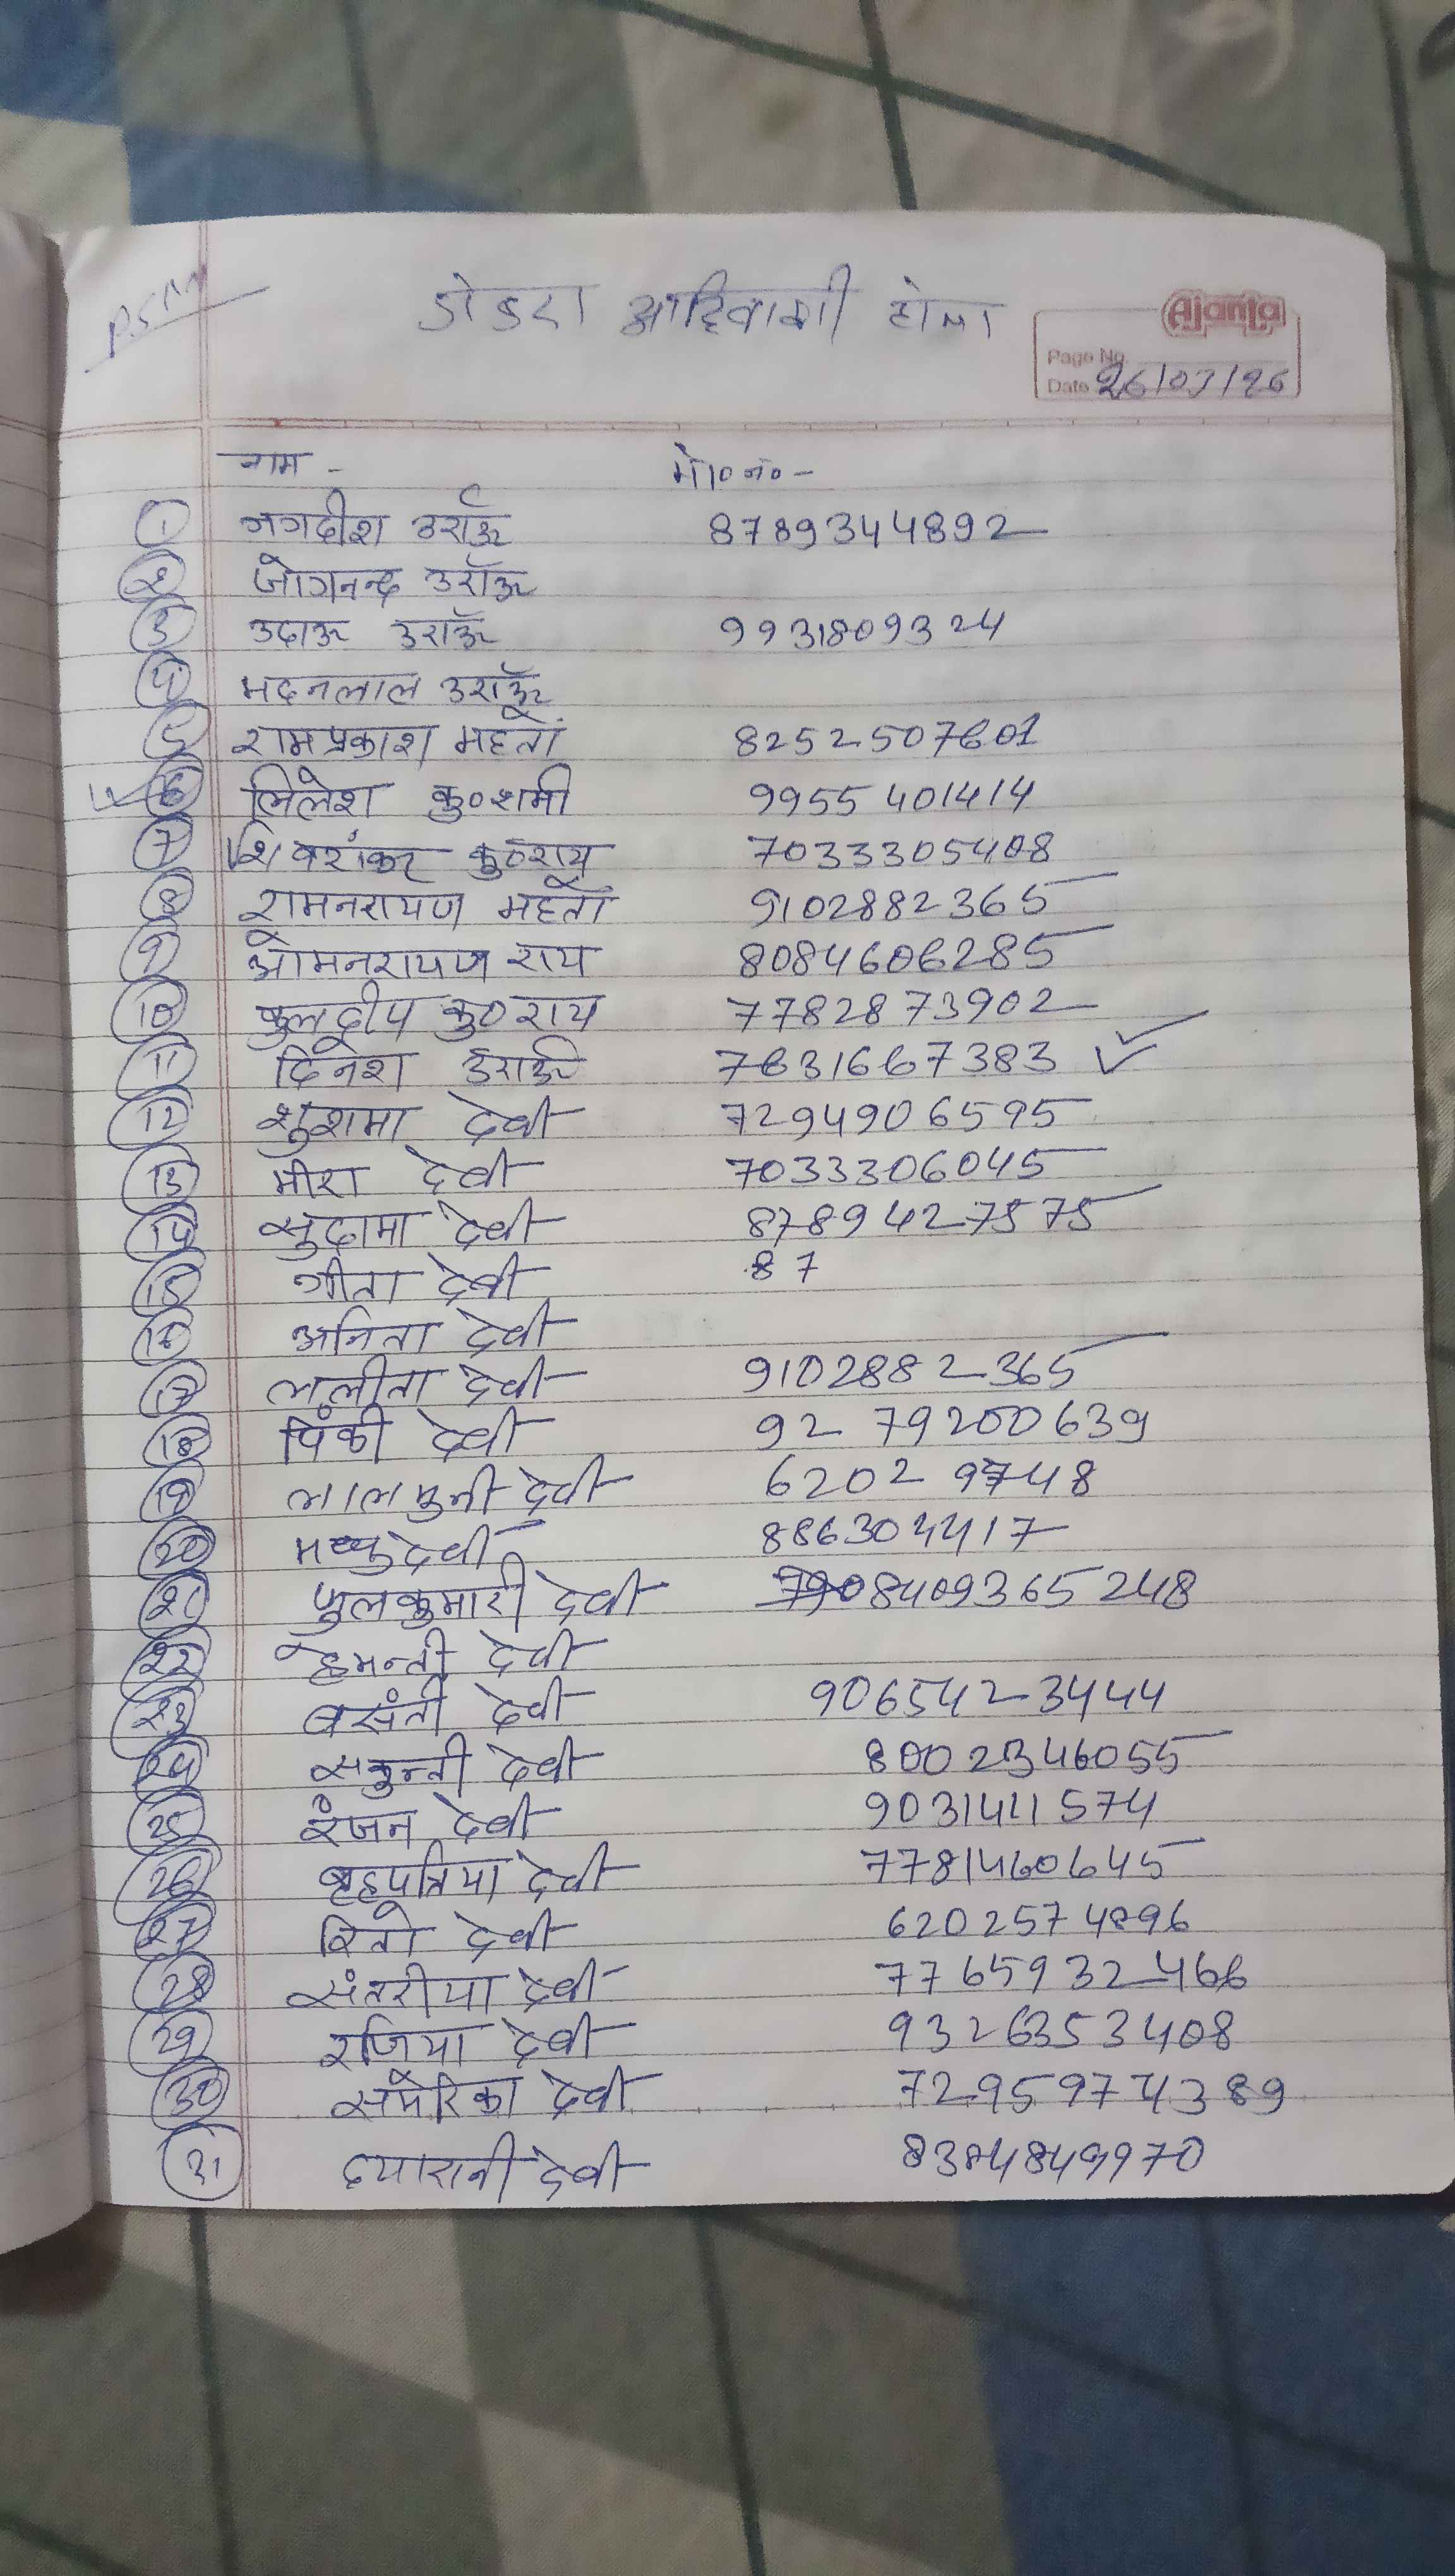 डोडरा आदिवासी टोला
Ajanta
Page No.
Date 26/03/26
नाम - मो०न० -
1 जगदीश उराँऊ 8789344892
2 जोगनन्द उराँऊ
3 उदाऊ उराँऊ 9931809324
4 मदनलाल उराँऊ
5 रामप्रकाश महतो 8252507601
6 निलेश कु०शर्मा 9955401414
7 शिवशंकर कु०राय 7033305408
8 रामनरायण महतो 9102882365
9 ओमनरायण राय 8084606285
10 कुलदीप कु०राय 7782873902
11 दिनेश उराँऊ 7631667383
12 शुशमा देवी 7294906595
13 मीरा देवी 7033306045
14 सुदामा देवी 8789427575
15 गीता देवी 87
16 अनिता देवी
17 ललीता देवी 9102882365
18 पिंकी देवी 92 79200639
19 लालमुनी देवी 6202 9748
20 देवी 886304417
21 फुलकुमारी देवी 8409365248
22 हेमन्ती देवी
23 बसंती देवी 9065423444
24 सकुन्ती देवी 8002346055
25 रंजन देवी 9031411574
26 देवी 7781460645
27 रितो देवी 6202574896
28 संतरीया देवी 7765932466
29 रजिया देवी 9326353408
30 समेरिका देवी 7295974389
31 दयारानी देवी 8304849970